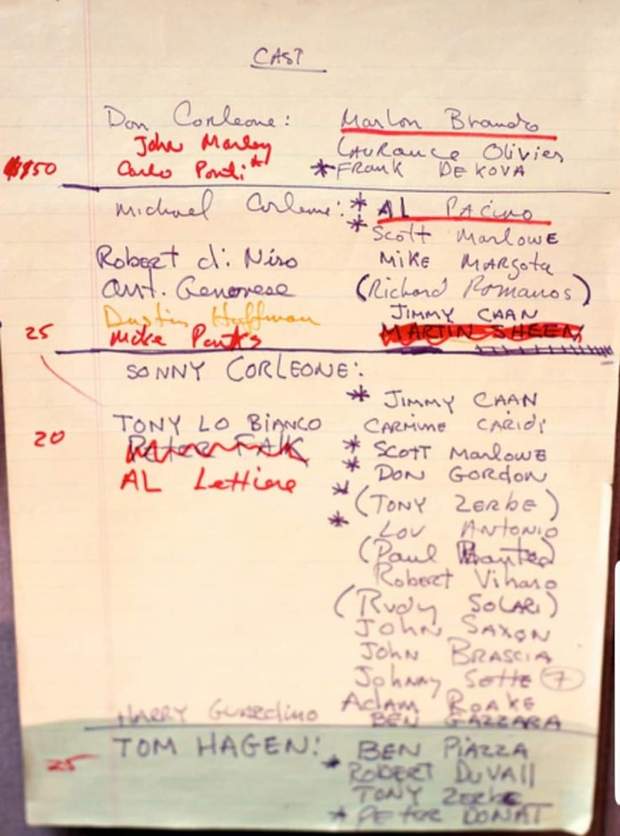 CAST
Don Corleone: Marlon Brando
John Marley LAURANCE Olivier
$150 Carlo Ponti * * FRANK DE KOVA
Michael Corleone: * AL PACINO
* Scott MARLOWE
Robert di Niro MIKE MARGOTA
Ant. Genovese (Richard Romanos)
Dustin Hoffman JIMMY CAAN
25 Mike MARTIN SHEEN
SONNY CORLEONE:
* JIMMY CAAN
TONY LO BIANCO CARMINE CARIDI
20 Peter FALK * SCOTT MARLOWE
AL Lettiere * DON GORDON
* (TONY ZERBE)
* LOU ANTONIO
(Paul
Robert Viharo
(Rudy SOLARI)
JOHN SAXON
JOHN BRASCIA
Johnny Sette 7
Adam ROAKE
HARRY GUARDINO BEN GAZZARA
TOM HAGEN: BEN PIAZZA
25 * ROBERT DUVALL
TONY ZERBE
* PETER DONAT